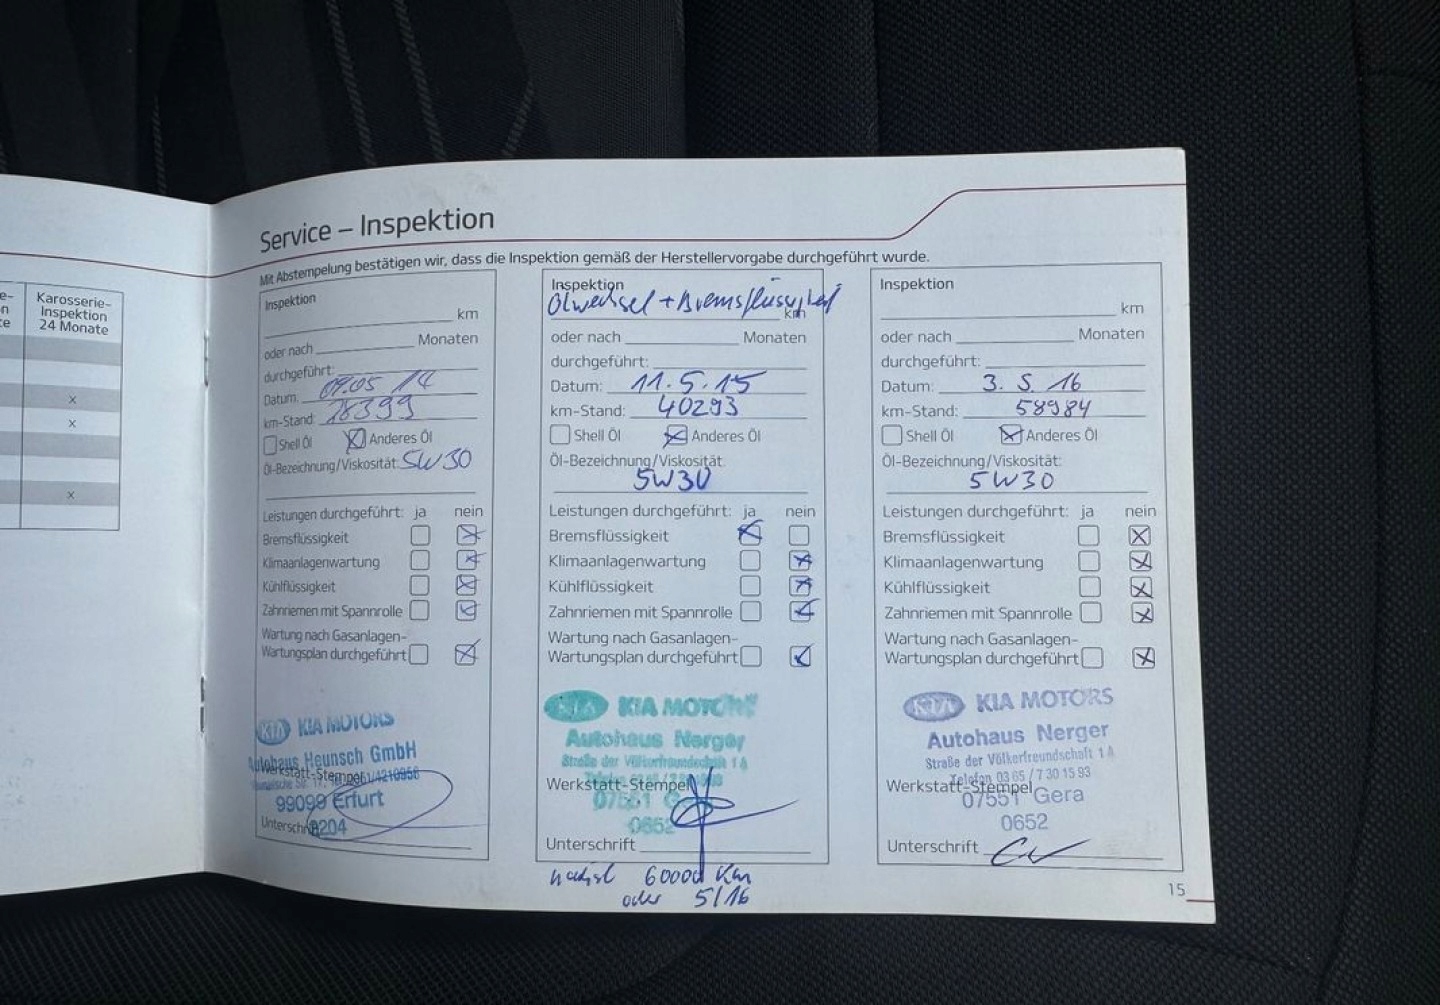 Karosserie-
Inspektion
24 Monate
x
x
x
Service – Inspektion
Mit Abstempelung bestätigen wir, dass die Inspektion gemäß der Herstellervorgabe durchgeführt wurde.
Inspektion
km
oder nach Monaten
durchgeführt:
Datum: 09.05 14
km-Stand: 18399
Shell Öl Anderes Öl
Öl-Bezeichnung/Viskosität: 5W30
Leistungen durchgeführt: ja nein
Bremsflüssigkeit
Klimaanlagenwartung
Kühlflüssigkeit
Zahnriemen mit Spannrolle
Wartung nach Gasanlagen-
Wartungsplan durchgeführt
KIA MOTORS
Autohaus Heunsch GmbH
Werkstatt-Stempel
99099 Erfurt
Unterschrift
Inspektion
Ölwechsel + Bremsflüssigkeit
km
oder nach Monaten
durchgeführt:
Datum: 11.5.15
km-Stand: 40293
Shell Öl Anderes Öl
Öl-Bezeichnung/Viskosität:
5W30
Leistungen durchgeführt: ja nein
Bremsflüssigkeit
Klimaanlagenwartung
Kühlflüssigkeit
Zahnriemen mit Spannrolle
Wartung nach Gasanlagen-
Wartungsplan durchgeführt
KIA MOTORS
Autohaus Nerger
Straße der Völkerfreundschaft 1A
Werkstatt-Stempel
07551
0652
Unterschrift
nächst 60000 Km
oder 5/16
Inspektion
km
oder nach Monaten
durchgeführt:
Datum: 3. 5. 16
km-Stand: 58984
Shell Öl Anderes Öl
Öl-Bezeichnung/Viskosität:
5W30
Leistungen durchgeführt: ja nein
Bremsflüssigkeit
Klimaanlagenwartung
Kühlflüssigkeit
Zahnriemen mit Spannrolle
Wartung nach Gasanlagen-
Wartungsplan durchgeführt
KIA KIA MOTORS
Autohaus Nerger
Straße der Völkerfreundschaft 1A
Telefon 03 65 / 7 30 15 93
Werkstatt-Stempel
07551 Gera
0652
Unterschrift
15